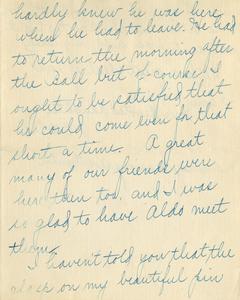 hardly knew he was here
when he had to leave. He had
to return the morning after
the Ball but of course I
ought to be satisfied that
he could come even for that
short a time. A great
many of our friends were
here then too, and I was
so glad to have Aldo meet
them.
I haven't told you that the
clock on my beautiful pin